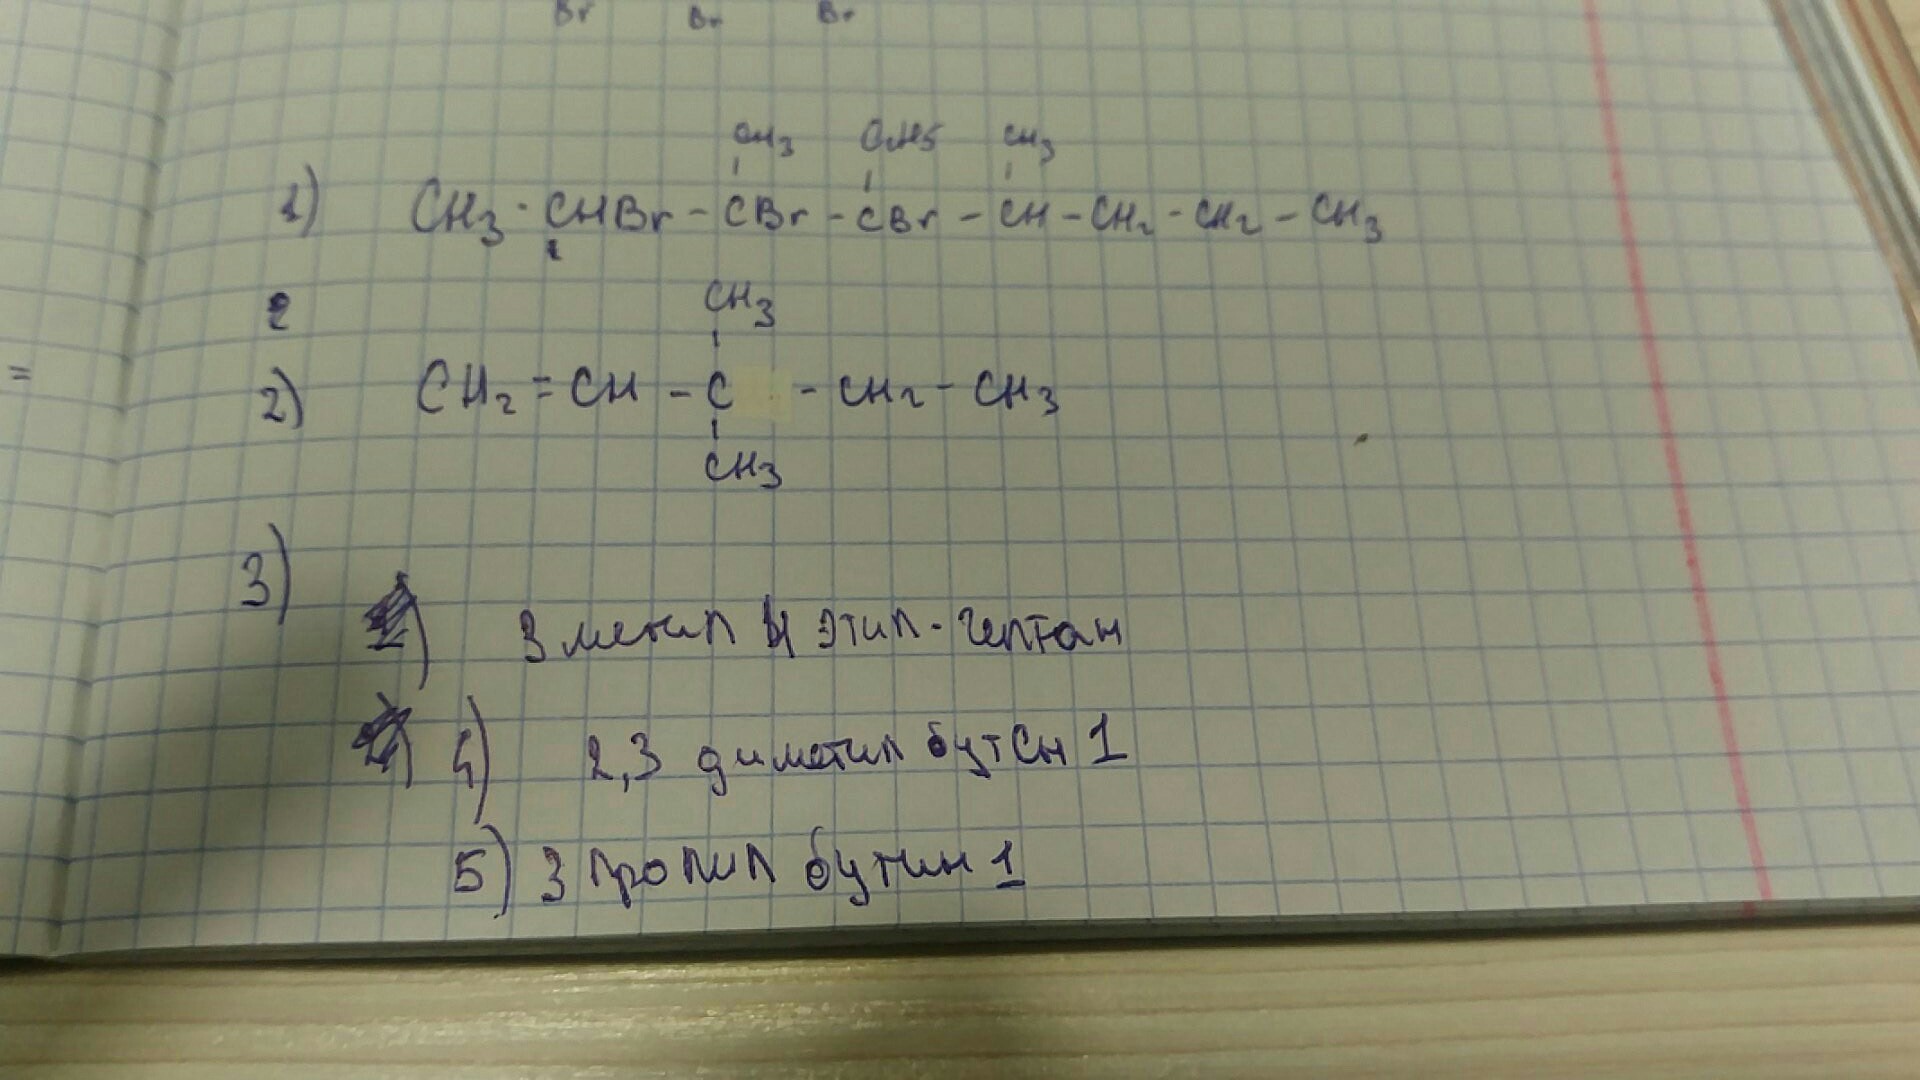 Br Br Br
CH3 C2H5 CH3
1) CH3 - CHBr - CBr - CBr - CH - CH2 - CH2 - CH3
2
CH3
2) CH2 = CH - C - CH2 - CH3
=
CH3
3)
3 метил 4 этил - гептан
4) 2,3 диметил бутен 1
5) 3 пропил бутин 1